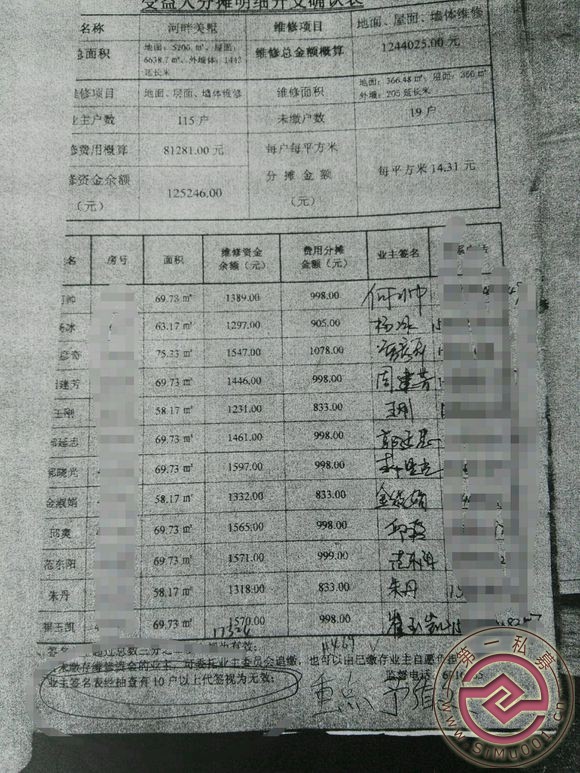 受益人分摊明细并交确认表
名称 河畔美墅 维修项目 地面、屋面、墙体维修
总面积 地面：5200 ㎡，屋面：6638.7 ㎡，外墙体：1442 延长米 维修总金额概算 1244025.00 元
维修项目 地面、层面、墙体维修 维修面积 地面：366.48 ㎡，屋面：360 ㎡ 外墙：205 延长米
业主户数 115 户 未缴户数 19 户
费用概算 81281.00 元 每户每平方米分摊金额（元） 每平方米 14.31 元
资金余额（元） 125246.00
名 房号 面积 维修资金余额（元） 费用分摊金额（元） 业主签名
帅 69.73 ㎡ 1389.00 998.00 何帅
杨冰 63.17 ㎡ 1297.00 905.00 杨冰
奇 75.33 ㎡ 1547.00 1078.00
周建芳 69.73 ㎡ 1446.00 998.00 周建芳
王刚 58.17 ㎡ 1231.00 833.00 王刚
郭延志 69.73 ㎡ 1461.00 998.00 郭延志
郝晓光 69.73 ㎡ 1597.00 998.00
金淑娟 58.17 ㎡ 1332.00 833.00 金淑娟
邱 69.73 ㎡ 1565.00 998.00 邱
范东阳 69.73 ㎡ 1571.00 999.00 范东阳
朱丹 58.17 ㎡ 1318.00 833.00 朱丹
崔玉凯 69.73 ㎡ 1570.00 998.00 崔玉凯
17324 11469
签名 超过总数三分之二 为有效；
未缴存维修资金的业主，可委托业主委员会追缴，也可以由已缴存业主自愿
业主签名表经抽查有 10 户以上代签视为无效；
监督电话
重点
第一私募
simu001.cn